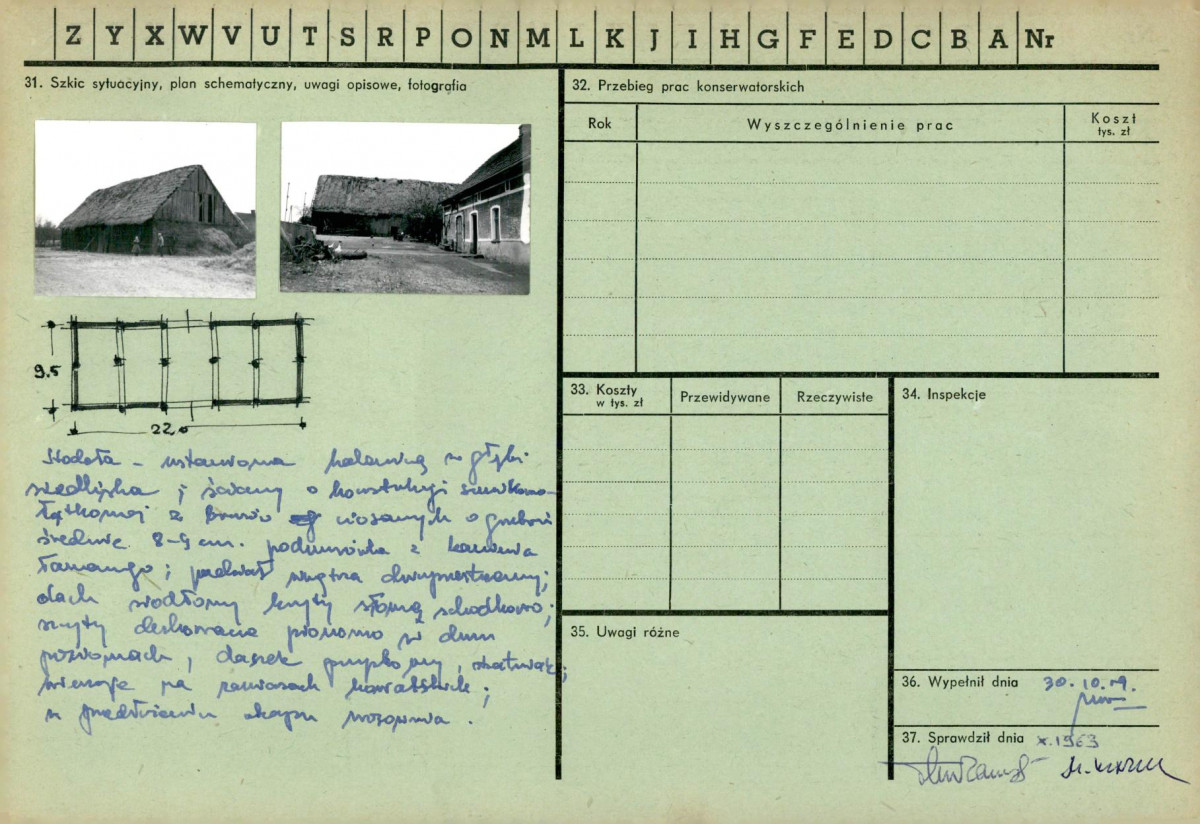 Z Y X W V U T S R P O N M L K J I H G F E D C B A Nr
31. Szkic sytuacyjny, plan schematyczny, uwagi opisowe, fotografia
9.5
22.0
Stodoła – ustawiona kalenicą w głębi
siedliska; ściany o konstrukcji sumikowo-
łątkowej z ciosanych o grubości
średnio 8-9 cm. podmurówka z kamienia
łamanego; wnętrza
dach siodłowy kryty słomą schodkowo;
szczyty deskowane pionowo w dwu
poziomach, daszek przyzbowy,
na zawiasach kowalskich;
w okapu wozownia.
32. Przebieg prac konserwatorskich
Rok
Wyszczególnienie prac
Koszt
tys. zł
33. Koszty
w tys. zł
Przewidywane
Rzeczywiste
34. Inspekcje
35. Uwagi różne
36. Wypełnił dnia 30.10.
37. Sprawdził dnia X.1963